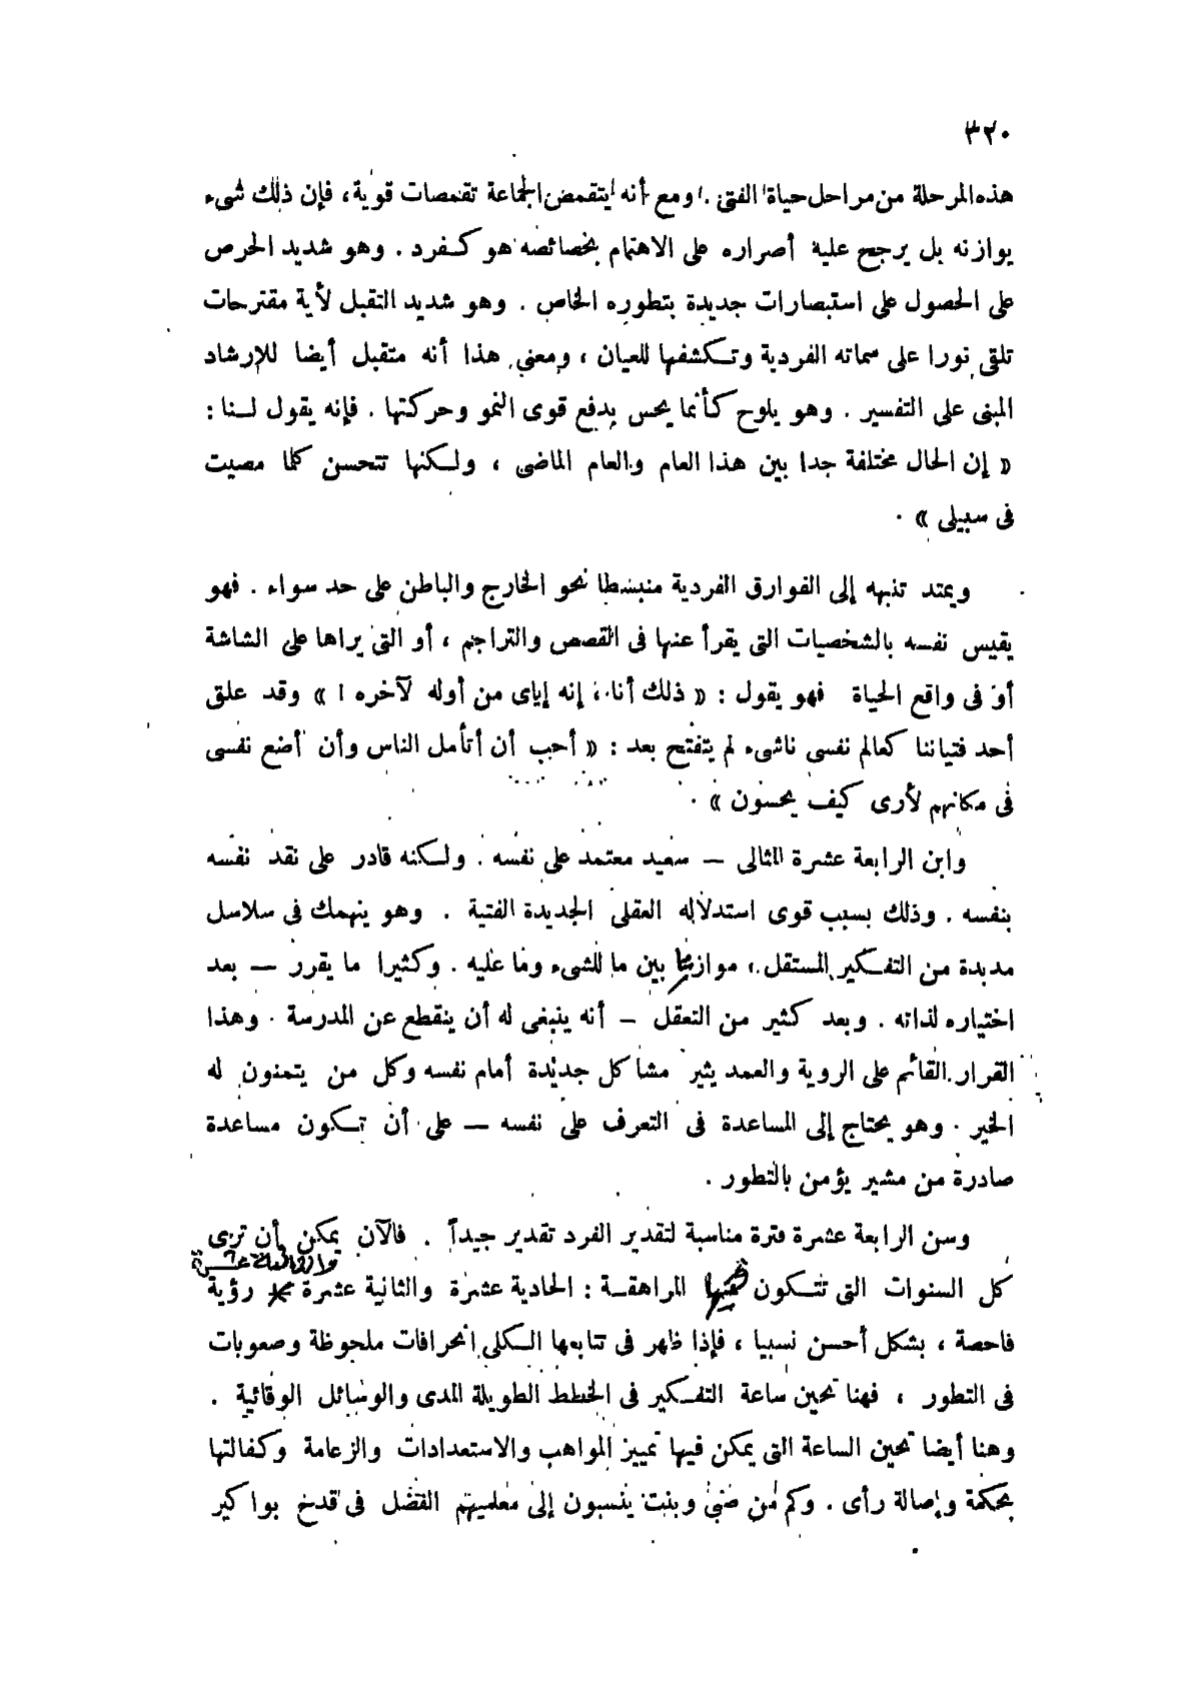 ٣٢٠
هذه المرحلة من مراحل حياة الفتى . ومع أنه يتقمص الجماعة تقمصات قوية ، فإن ذلك شىء
يوازنه بل يرجح عليه أصراره على الاهتمام بخصائصه هو كفرد . وهو شديد الحرص
على الحصول على استبصارات جديدة بتطوره الخاص . وهو شديد التقبل لأية مقترحات
تلقى نورا على سماته الفردية وتكشفها للعيان ، ومعنى هذا أنه متقبل أيضا للإرشاد
المبنى على التفسير . وهو يلوح كأنما يحس بدفع قوى النمو وحركتها . فإنه يقول لنا :
« إن الحال مختلفة جدا بين هذا العام والعام الماضى ، ولكنها تتحسن كلما مصيت
فى سبيلى » .
ويمتد تنبهه إلى الفوارق الفردية منبسطا نحو الخارج والباطن على حد سواء . فهو
يقيس نفسه بالشخصيات التى يقرأ عنها فى القصص والتراجم ، أو التى يراها على الشاشة
أو فى واقع الحياة فهو يقول : « ذلك أنا ، إنه إياى من أوله لآخره ! » وقد علق
أحد فتياننا كعالم نفسى ناشىء لم يتفتح بعد : « أحب أن أتأمل الناس وأن أضع نفسى
فى مكانهم لأرى كيف يحسون » .
وابن الرابعة عشرة المثالى — سعيد معتمد على نفسه . ولكنه قادر على نقد نفسه
بنفسه . وذلك بسبب قوى استدلاله العقلى الجديدة الفتية . وهو ينهمك فى سلاسل
مديدة من التفكير المستقل ، موازنا بين ما للشىء وما عليه . وكثيرا ما يقرر — بعد
اختياره لذاته . وبعد كثير من التعقل — أنه ينبغى له أن ينقطع عن المدرسة . وهذا
القرار القائم على الروية والعمد يثير مشاكل جديدة أمام نفسه وكل من يتمنون له
الخير . وهو يحتاج إلى المساعدة فى التعرف على نفسه — على أن تكون مساعدة
صادرة من مشير يؤمن بالتطور .
وسن الرابعة عشرة فترة مناسبة لتقدير الفرد تقدير جيداً . فالآن يمكن أن ترى
والثالثة عشرة
كل السنوات التى تتكون منها المراهقة : الحادية عشرة والثانية عشرة رؤية
فاحصة ، بشكل أحسن نسبيا ، فإذا ظهر فى تتابعها الكلى انحرافات ملحوظة وصعوبات
فى التطور ، فهنا تحين ساعة التفكير فى الخطط الطويلة المدى والوسائل الوقائية .
وهنا أيضا تحين الساعة التى يمكن فيها تمييز المواهب والاستعدادات والزعامة وكفالتها
بحكمة وإصالة رأى . وكم من صبى وبنت ينسبون إلى معلميهم الفضل فى قدح بواكير